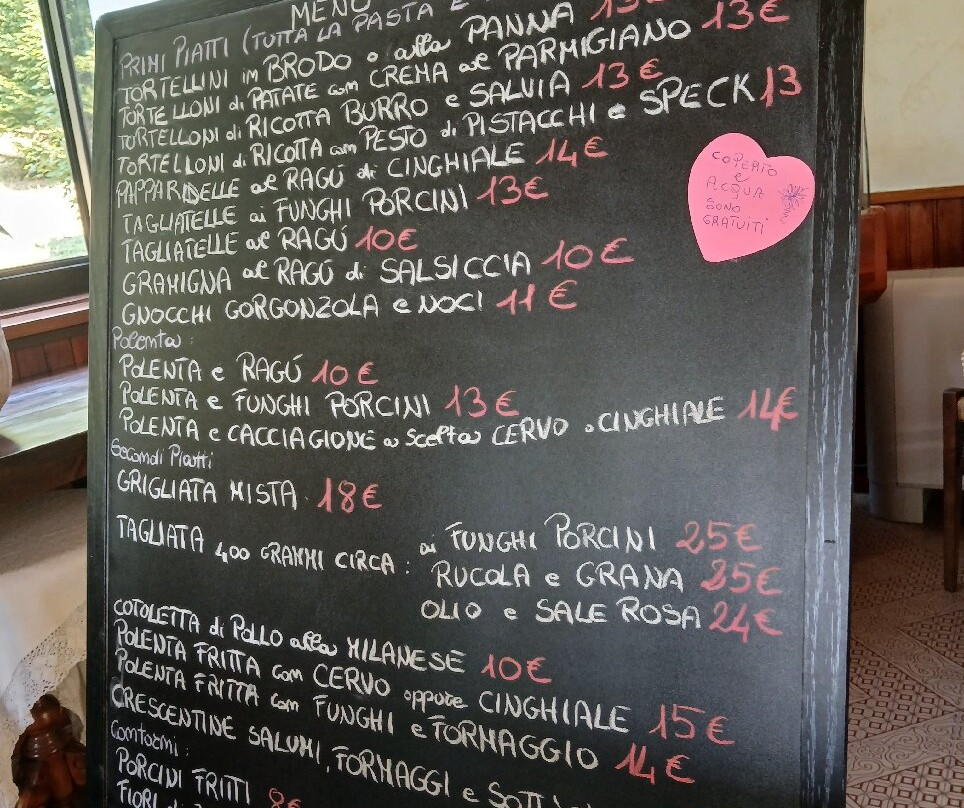 MENÙ
PRIMI PIATTI (TUTTA LA PASTA E
TORTELLINI in BRODO o alla PANNA 13€
TORTELLONI di PATATE con CREMA al PARMIGIANO 13€
TORTELLONI di RICOTTA BURRO e SALVIA 13€
TORTELLONI di RICOTTA con PESTO di PISTACCHI e SPECK 13
PAPPARDELLE al RAGÚ di CINGHIALE 14€
TAGLIATELLE ai FUNGHI PORCINI 13€
TAGLIATELLE al RAGÚ 10€
GRAMIGNA al RAGÚ di SALSICCIA 10€
GNOCCHI GORGONZOLA e NOCI 11€
Polenta:
POLENTA e RAGÚ 10€
POLENTA e FUNGHI PORCINI 13€
POLENTA e CACCIAGIONE a scelta CERVO o CINGHIALE 14€
Secondi Piatti
GRIGLIATA MISTA 18€
TAGLIATA 400 GRAMMI CIRCA: ai FUNGHI PORCINI 25€
RUCOLA e GRANA 25€
OLIO e SALE ROSA 24€
COTOLETTA di POLLO alla MILANESE 10€
POLENTA FRITTA con CERVO oppure CINGHIALE 15€
POLENTA FRITTA con FUNGHI e FORMAGGIO 14€
CRESCENTINE SALUMI, FORMAGGI e
Contorni:
PORCINI FRITTI 8€
FIORI di
COPERTO
e
ACQUA
SONO
GRATUITI